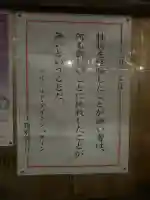 挫折を経験したことが無い者は、
何も新しいことに挑戦したことが
無いということだ。
アルベルト・アインシュタイン